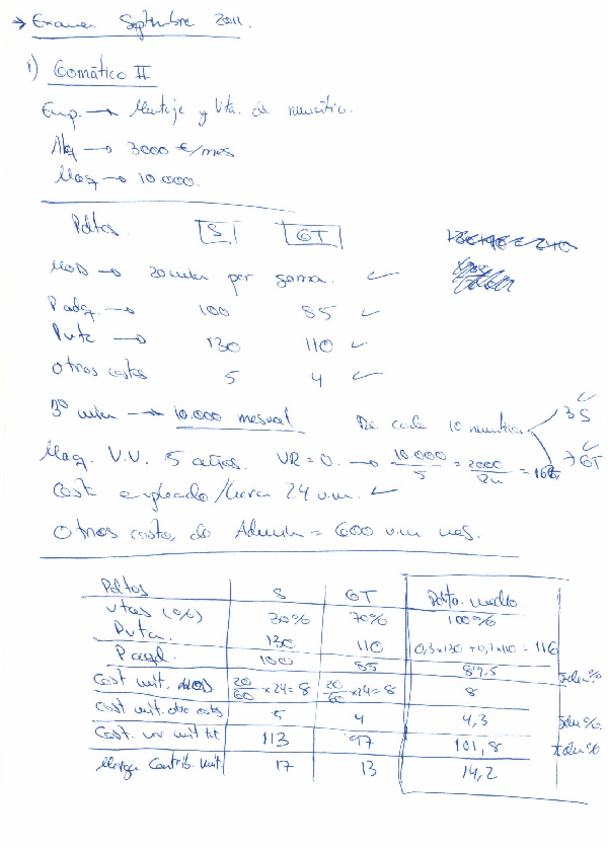 → Examen Septiembre 2011.
1) Gomático II
Emp. → Montaje y Vta. de neumático.
Alq → 3000 €/mes
Maq → 10.000.
Pdtos. S GT
MOD → 20 min por goma. ✓
P adq. → 100 85 ✓
P vta → 130 110 ✓
Otros costes 5 4 ✓
→ 10.000 mensual De cada 10 neumáticos 3 S
7 GT
Maq. V.V. 5 años. VR = 0. → 10.000/5 = 2000/12m = 166
Cost empleado/hora 24 u.m. ✓
Otros costes de Admon = 600 u.m mes.
Pdtos S GT Pdto. medio
Vtas (%) 30% 70% 100%
P vta. 130 110 0,3x130 + 0,7x110 = 116
P adq. 100 85 89.5
Cost unit. MOD 20/60 x24=8 20/60 x24=8 8
Cost unit. otro costs 5 4 4,3
Cost. var unit tot 113 97 101,8
Margen Contrib. unit. 17 13 14,2